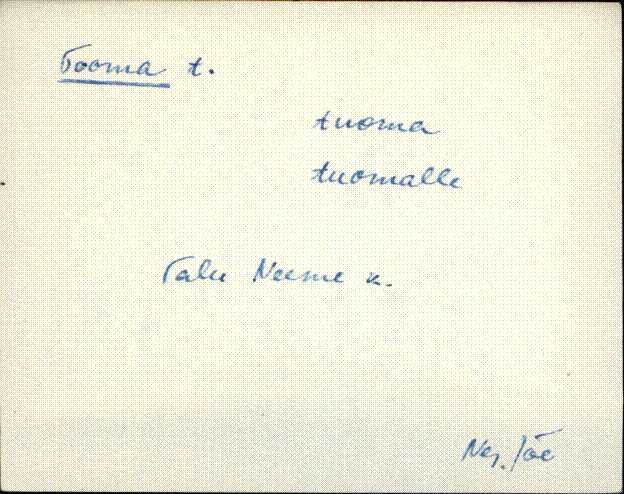 Tooma t.
tuoma
tuomalle
Talu Neeme k.
Jõe